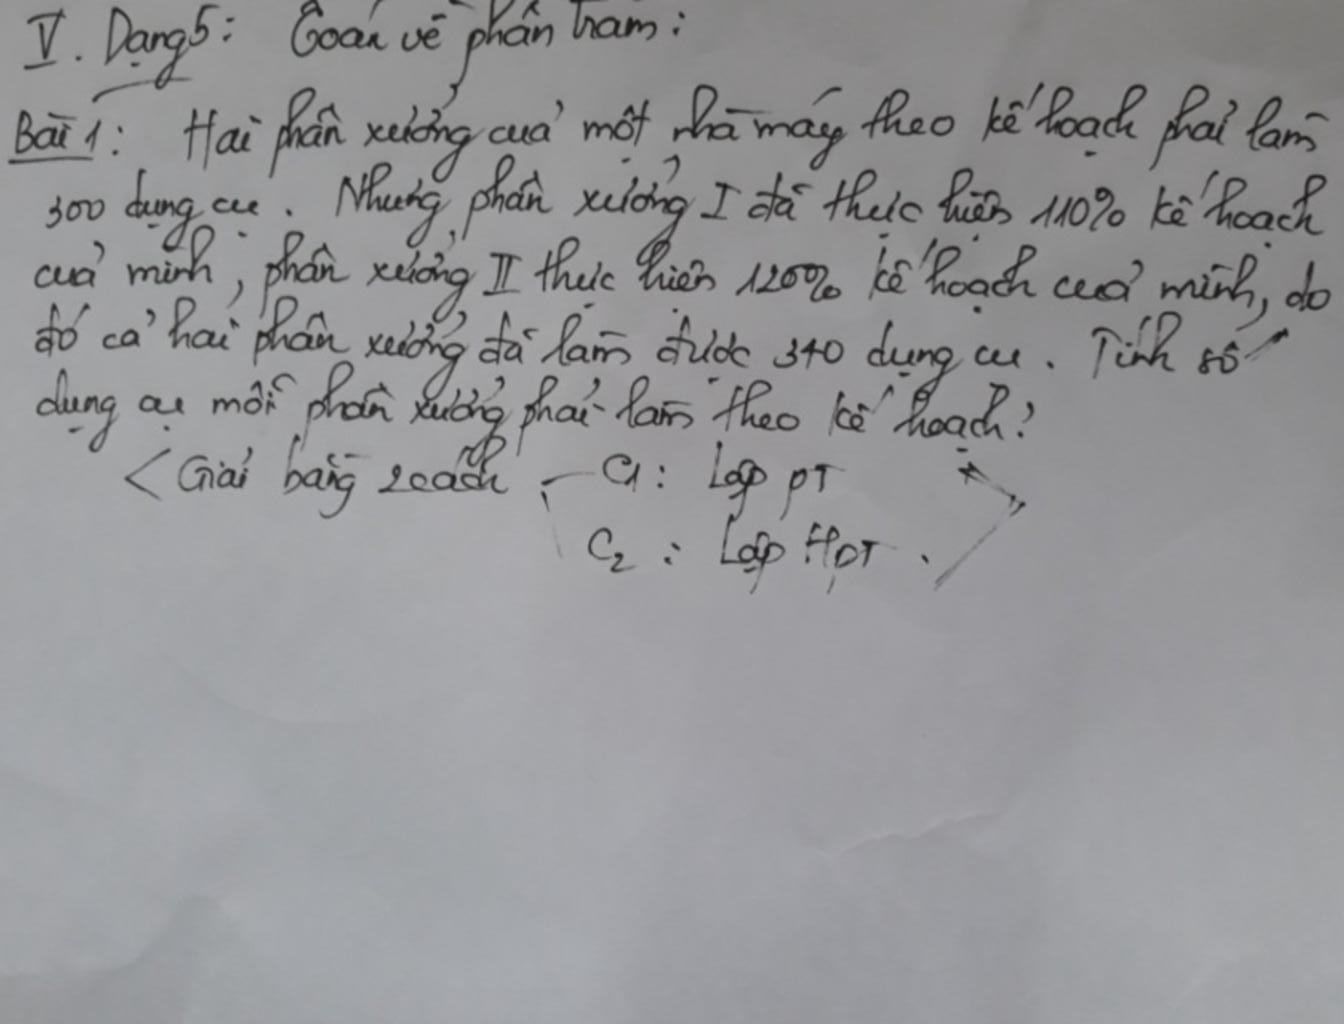 V. Dạng 5: Toán về phần trăm:
Bài 1: Hai phân xưởng của một nhà máy theo kế hoạch phải làm
300 dụng cụ. Nhưng phân xưởng I đã thực hiện 110% kế hoạch
của mình, phân xưởng II thực hiện 120% kế hoạch của mình, do
đó cả hai phân xưởng đã làm được 340 dụng cụ. Tính số
dụng cụ mỗi phân xưởng phải làm theo kế hoạch?
< Giải bằng 2 cách C1: Lập PT
C2: Lập HPT. >